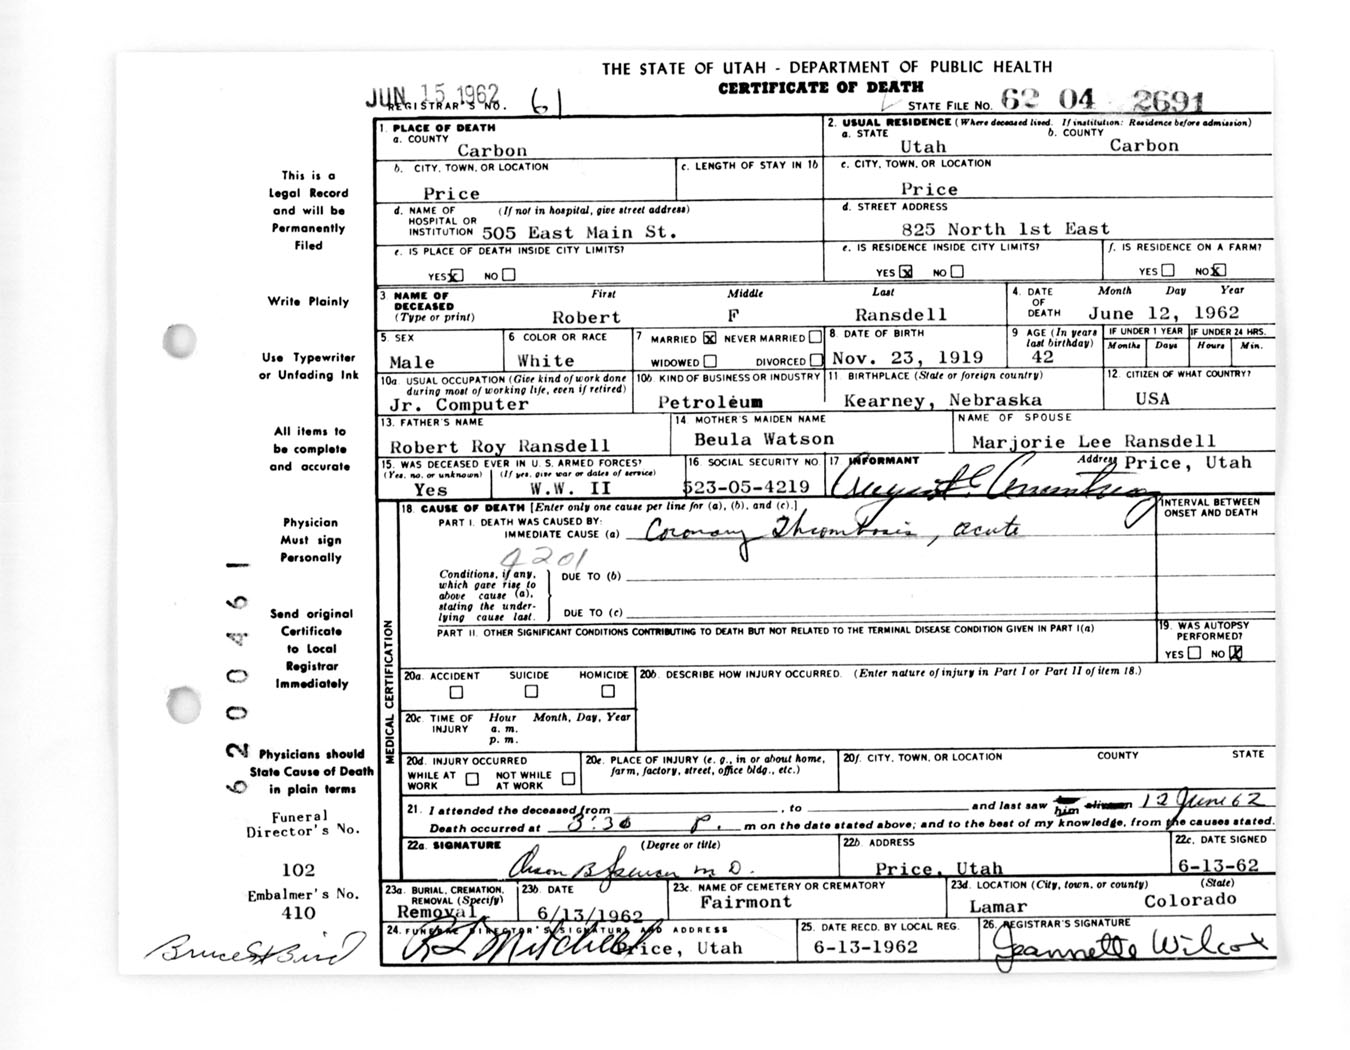 THE STATE OF UTAH - DEPARTMENT OF PUBLIC HEALTH
CERTIFICATE OF DEATH
JUN 15 1962
REGISTRAR'S NO. 61
STATE FILE NO. 62 04 2691
1. PLACE OF DEATH
a. COUNTY
Carbon
2. USUAL RESIDENCE (Where deceased lived. If institution: Residence before admission)
a. STATE b. COUNTY
Utah Carbon
b. CITY, TOWN, OR LOCATION
Price
c. LENGTH OF STAY IN 1b
c. CITY, TOWN, OR LOCATION
Price
d. NAME OF (If not in hospital, give street address)
HOSPITAL OR
INSTITUTION 505 East Main St.
d. STREET ADDRESS
825 North 1st East
e. IS PLACE OF DEATH INSIDE CITY LIMITS?
YES X NO
e. IS RESIDENCE INSIDE CITY LIMITS?
YES X NO
f. IS RESIDENCE ON A FARM?
YES NO X
3. NAME OF DECEASED
(Type or print)
First Middle Last
Robert F Ransdell
4. DATE OF DEATH
Month Day Year
June 12, 1962
5. SEX
Male
6 COLOR OR RACE
White
7 MARRIED X NEVER MARRIED
WIDOWED DIVORCED
8. DATE OF BIRTH
Nov. 23, 1919
9 AGE (In years last birthday)
42
IF UNDER 1 YEAR
Months Days
IF UNDER 24 HRS.
Hours Min.
10a. USUAL OCCUPATION (Give kind of work done during most of working life, even if retired)
Jr. Computer
10b. KIND OF BUSINESS OR INDUSTRY
Petroleum
11 BIRTHPLACE (State or foreign country)
Kearney, Nebraska
12. CITIZEN OF WHAT COUNTRY?
USA
13. FATHER'S NAME
Robert Roy Ransdell
14 MOTHER'S MAIDEN NAME
Beula Watson
NAME OF SPOUSE
Marjorie Lee Ransdell
15. WAS DECEASED EVER IN U.S. ARMED FORCES?
(Yes, no, or unknown) (If yes, give war or dates of service)
Yes W.W. II
16. SOCIAL SECURITY NO.
523-05-4219
17 INFORMANT Address
Price, Utah
18. CAUSE OF DEATH [Enter only one cause per line for (a), (b), and (c).]
PART I. DEATH WAS CAUSED BY:
IMMEDIATE CAUSE (a) Coronary Thrombosis, acute
4201
INTERVAL BETWEEN
ONSET AND DEATH
Conditions, if any, which gave rise to above cause (a), stating the underlying cause last.
DUE TO (b)
DUE TO (c)
PART II. OTHER SIGNIFICANT CONDITIONS CONTRIBUTING TO DEATH BUT NOT RELATED TO THE TERMINAL DISEASE CONDITION GIVEN IN PART I(a)
19. WAS AUTOPSY PERFORMED?
YES NO X
MEDICAL CERTIFICATION
20a. ACCIDENT SUICIDE HOMICIDE
20b. DESCRIBE HOW INJURY OCCURRED. (Enter nature of injury in Part I or Part II of item 18.)
20c. TIME OF INJURY
Hour Month, Day, Year
a. m.
p. m.
20d. INJURY OCCURRED
WHILE AT WORK NOT WHILE AT WORK
20e. PLACE OF INJURY (e. g., in or about home, farm, factory, street, office bldg., etc.)
20f. CITY, TOWN, OR LOCATION COUNTY STATE
21. I attended the deceased from , to and last saw him alive on 12 June 62
Death occurred at 3:30 P. m on the date stated above; and to the best of my knowledge, from the causes stated.
22a. SIGNATURE (Degree or title)
Orson B Spencer M D.
22b ADDRESS
Price, Utah
22c. DATE SIGNED
6-13-62
23a. BURIAL, CREMATION, REMOVAL (Specify)
Removal
23b. DATE
6/13/1962
23c. NAME OF CEMETERY OR CREMATORY
Fairmont
23d. LOCATION (City, town, or county) (State)
Lamar Colorado
24. FUNERAL DIRECTOR'S SIGNATURE AND ADDRESS
R L Mitchell Price, Utah
25. DATE RECD. BY LOCAL REG.
6-13-1962
26. REGISTRAR'S SIGNATURE
Jeannette Wilcox
This is a
Legal Record
and will be
Permanently
Filed
Write Plainly
Use Typewriter
or Unfading Ink
All items to
be complete
and accurate
Physician
Must sign
Personally
Send original
Certificate
to Local
Registrar
Immediately
Physicians should
State Cause of Death
in plain terms
Funeral
Director's No.
102
Embalmer's No.
410
Bruce S Bird
62 00461